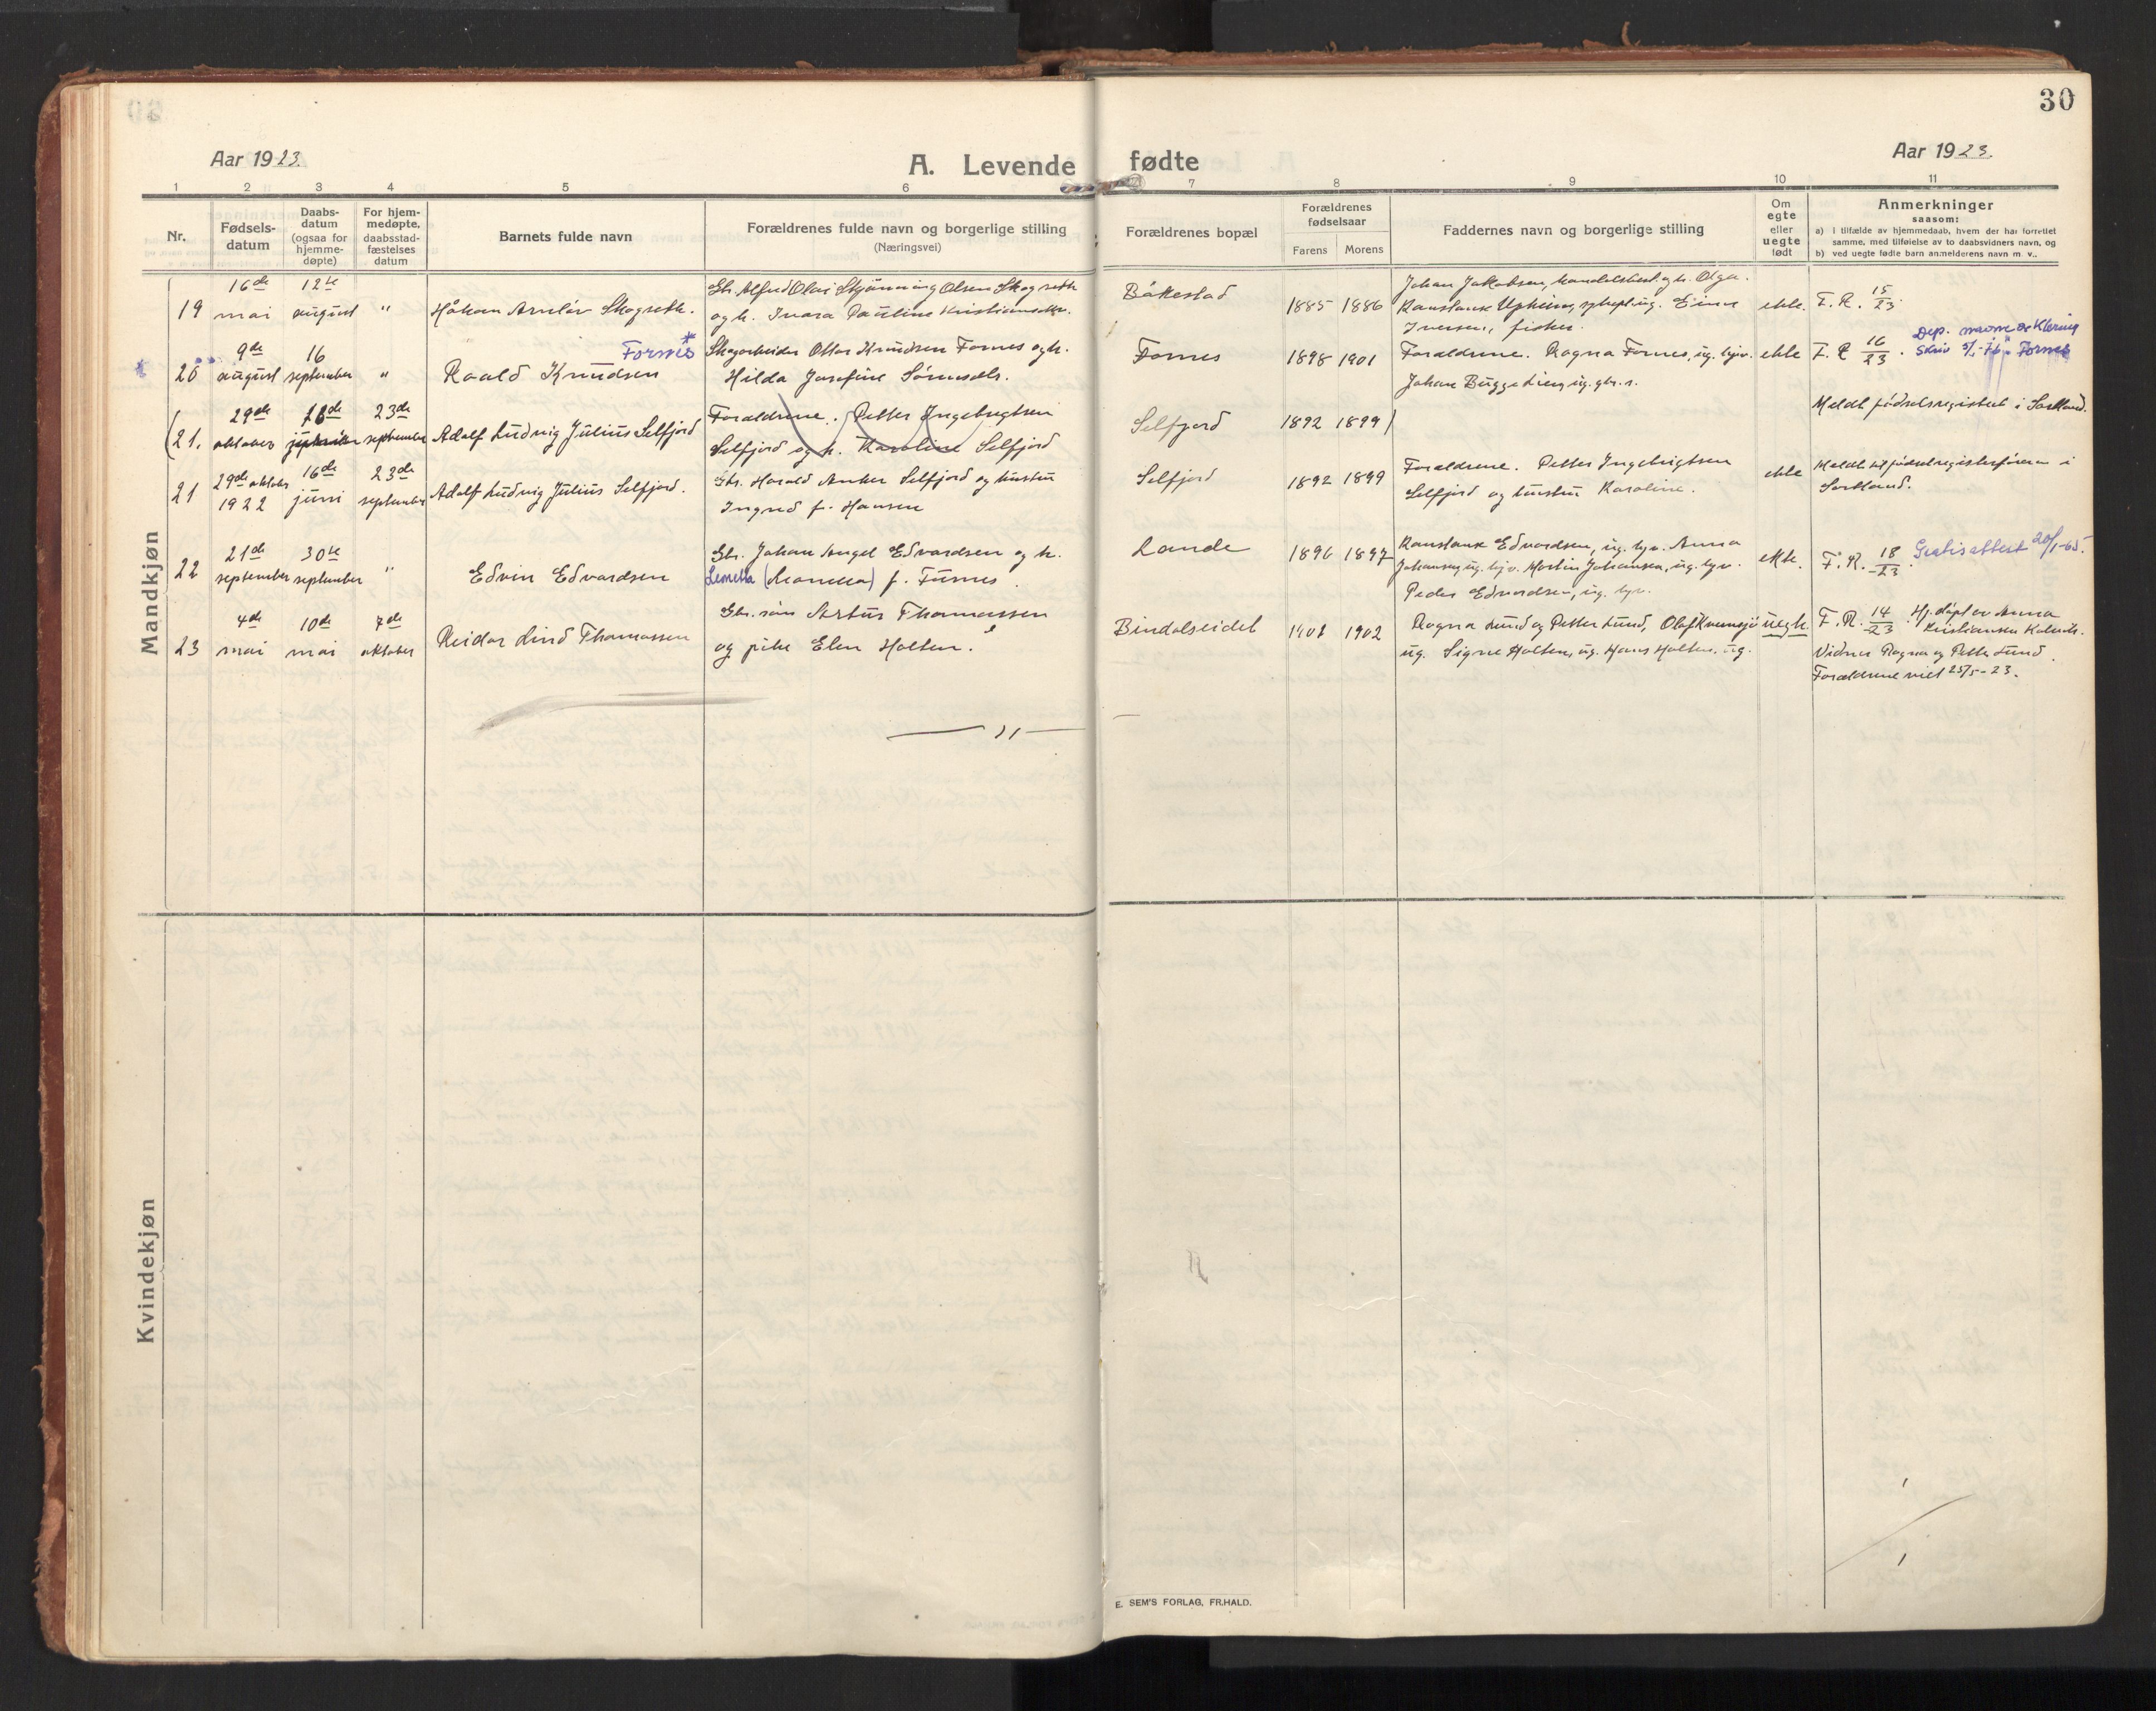 30
Aar 1923.
A. Levende fødte
Aar 1923.
1 2 3 4 5 6 7 8 9 10 11
Nr.
Fødsels-
datum
Daabs-
datum
(ogsaa for
hjemme-
døpte)
For hjem-
medøpte,
daabsstad-
fæstelses
datum
Barnets fulde navn
Forældrenes fulde navn og borgerlige stilling
(Næringsvei)
Forældrenes bopæl
Forældrenes
fødselsaar
Farens Morens
Faddernes navn og borgerlige stilling
Om
egte
eller
uegte
født
Anmerkninger
saasom:
a) i tilfælde av hjemmedaab, hvem der har forrettet
samme, med tilføielse av to daabsvidners navn, og
b) ved uegte fødte barn anmelderens navn m. v..
Mandkjøn
19
16de
mai
12te
august
"
Håkon Arnlóv Skogseth.
Gbr. Alfred Olai Olsen Skogseth
og h. Inara Pauline
Båkestad
1885 1886
Johan Jakobsen, og h. Olga.
Konstanse ug. Einar
Iversen, fisker.
ekte.
F. R. 15/23.
20
9de
august
16
september
"
Fornes *
Roald Knudsen
Skogarbeider Ottar Knudsen Fornes og h.
Hilda Josefine
Fornes
1898 1901
Forældrene. Ragna Fornes, ug.
Johan Bugge ug. gbr. s.
ekte
F. R 16/23.
Dep.
skriv 5/1-76 "Fornes
(21.
29de
oktober
16de
23de
september
Adolf Ludvig Julius Selfjord
Forældrene. Petter Ingebrigtsen
Selfjord og h. Karoline Selfjord
Selfjord
1892 1899)
Meldt fødselsregisteret i Sortland.
21
29de oktober
1922
16de
juni
23de
september
Adolf Ludvig Julius Selfjord.
Gbr. Harald Anker Selfjord og hustru
Ingrid f. Hansen
Selfjord
1892 1899
Forældrene. Petter Ingebrigtsen
Selfjord og hustru Karoline.
ekte
Meldt til fødselregisterføreren i
Sortland.
22
21de
september
30te
september
"
Edvin Edvardsen
Gbr. Johan Angel Edvardsen og h.
f. Furnes.
Lande
1896 1897
Konstanse Edvardsen, ug. Anna
Johansen, ug. Martin Johansen, ug.
Peder Edvardsen, ug.
ekte.
F. R. 18/23.
Gratisattest 20/1-65.
23
4de
mai
10de
mai
7de
oktober
Reidar Lind Thomassen
Gbr. søn Artur Thomassen
og pike Elen Holten.
Bindalseidet
1901 1902
Ragna Lund og Petter Lund, Olaf
ug. Signe Holten, ug. Hans Holten, ug.
uegte.
F. R. 14/23. Hj. døpt av Anna
Kristiansen
Vidner Ragna og Petter Lund.
Forældrene viet 25/5-23.
— " —
Kvindekjøn
E. SEM'S FORLAG, FR.HALD.